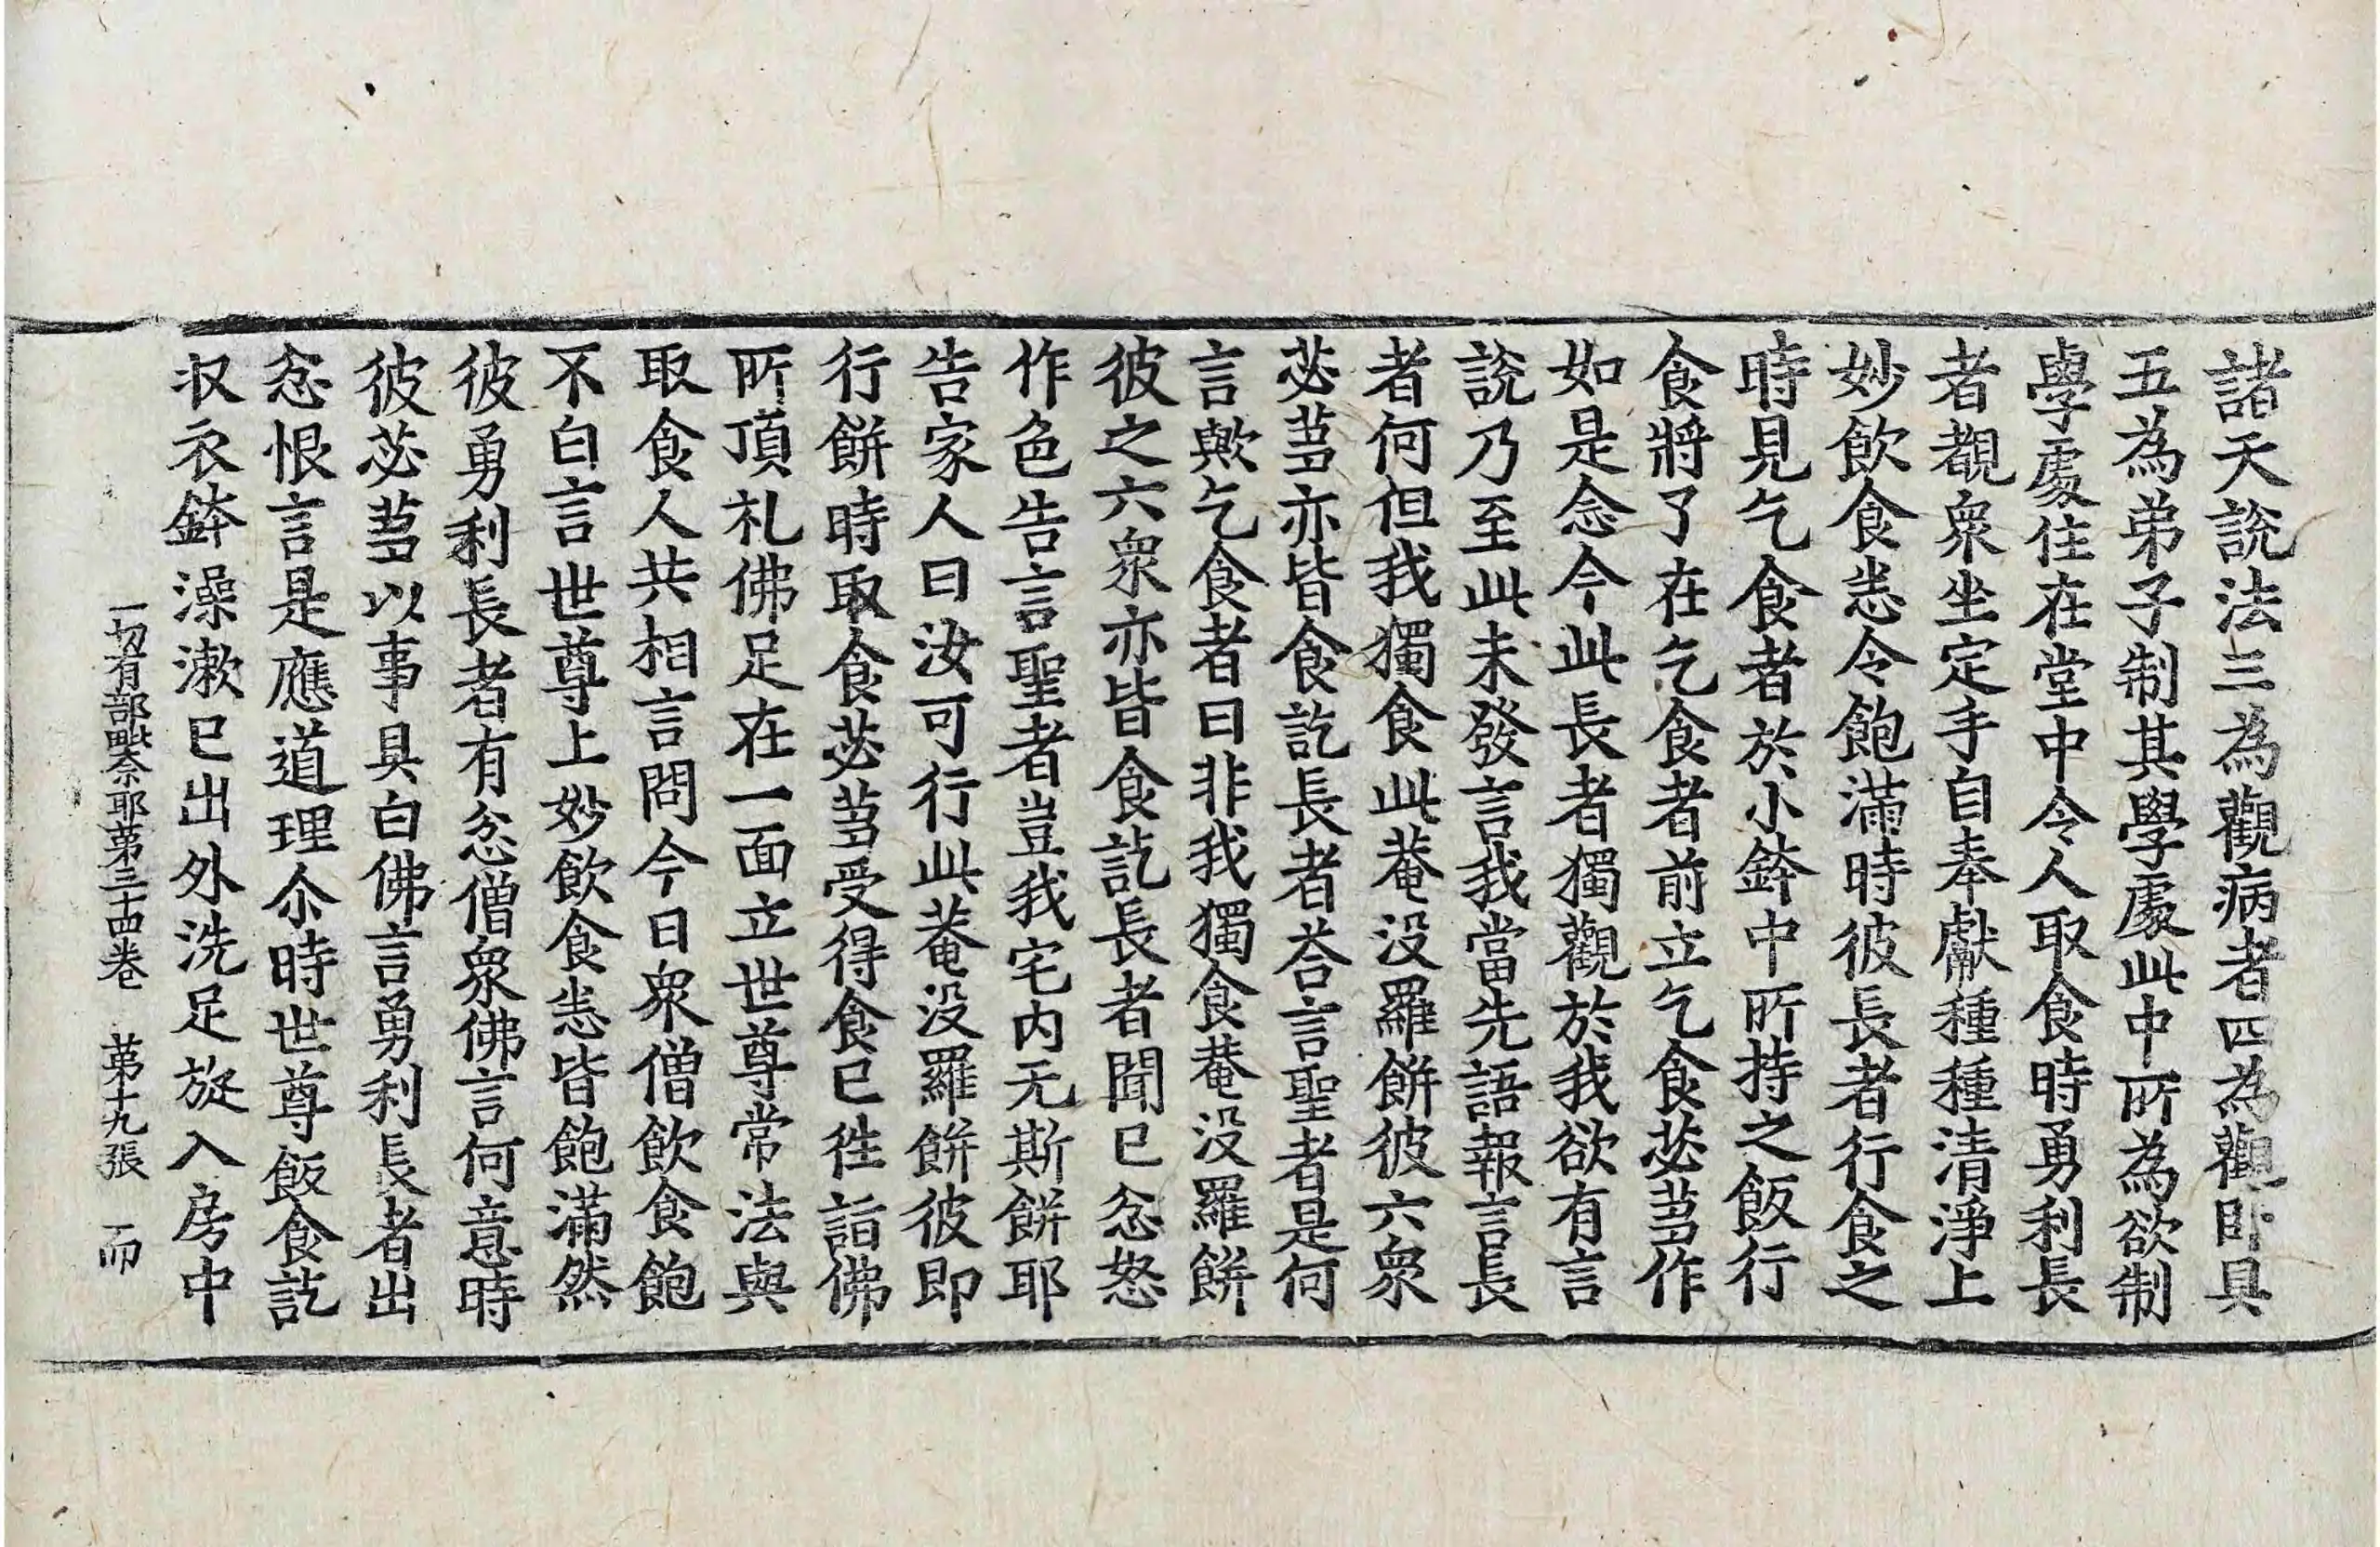 諸天說法三為觀病者四為觀卧具
五為弟子制其學處此中所為欲制
學處住在堂中令人取食時勇利長
者覩衆坐定手自奉獻種種清淨上
妙飲食悉令飽滿時彼長者行食之
時見乞食者於小鉢中所持之飯行
食將了在乞食者前立乞食苾芻作
如是念今此長者獨觀於我欲有言
說乃至此未發言我當先語報言長
者何但我獨食此菴没羅餅彼六衆
苾芻亦皆食訖長者荅言聖者是何
言歟乞食者曰非我獨食菴没羅餅
彼之六衆亦皆食訖長者聞已忿怒
作色告言聖者豈我宅内无斯餅耶
告家人曰汝可行此菴没羅餅彼即
行餅時取食苾芻受得食已徃詣佛
所頂礼佛足在一面立世尊常法與
取食人共相言問今日衆僧飲食飽
不白言世尊上妙飲食悉皆飽滿然
彼勇利長者有忿僧衆佛言何意時
彼苾芻以事具白佛言勇利長者出
忿恨言是應道理尒時世尊飯食訖
収衣鉢澡漱已出外洗足旋入房中
一切有部毗奈耶第三十四卷　第十九張　而